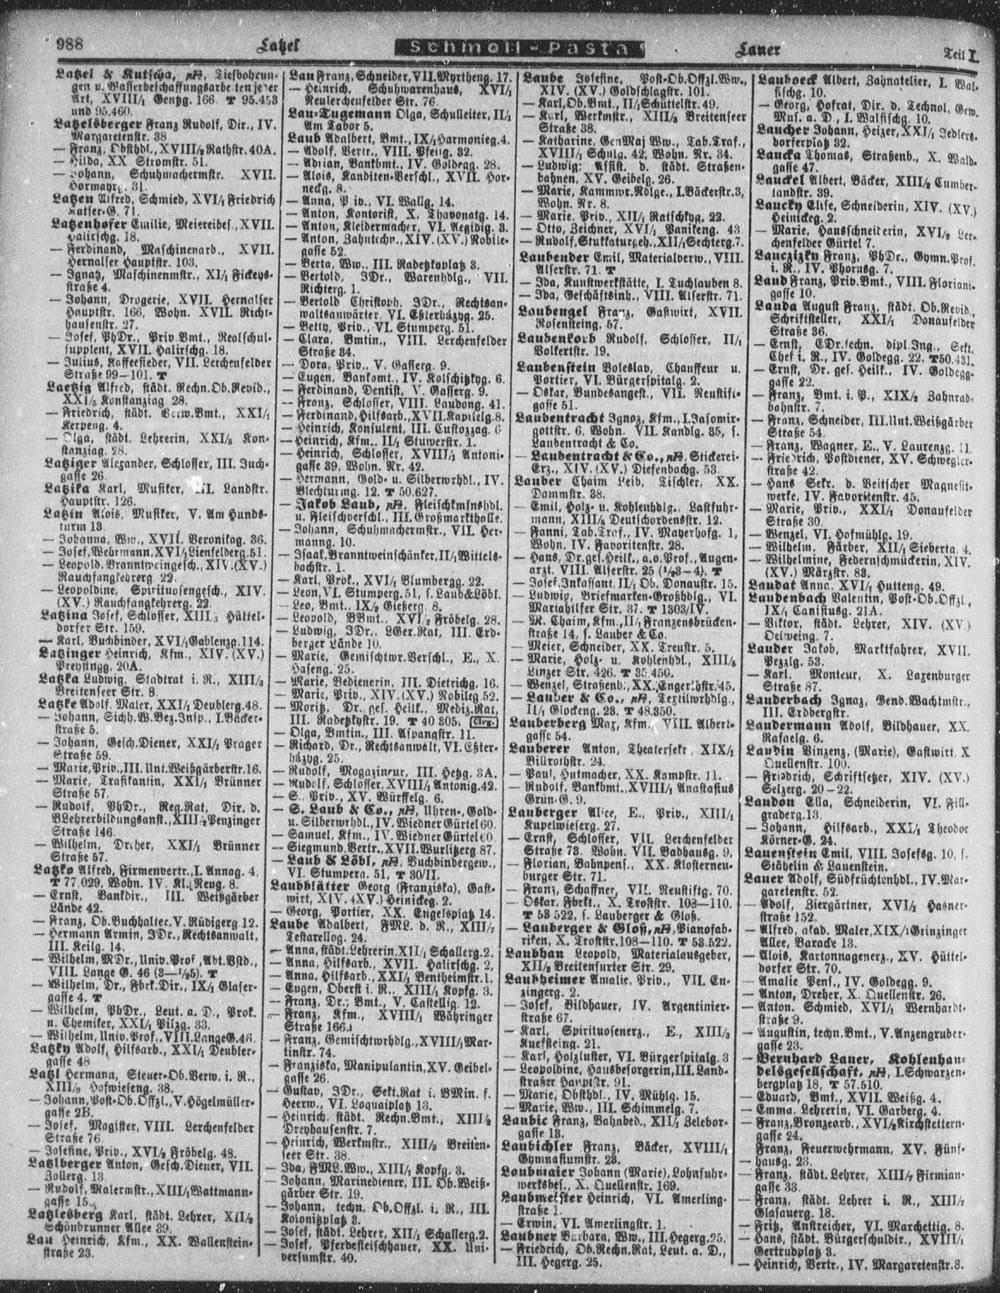 988
Latzel
Schmoll-Pasta
Lauer
Teil I.
Latzel & Kutscha, Tiefbohrun-
gen u. Wasserbeschaffungsarbeiten jeder
Art, XVIII/1 Gentzg. 166. T 95.453
und 95.460.
Latzelsberger Franz Rudolf, Dir., IV.
Margaretenstr. 38
— Franz, Obsthdl., XVIII/2 Rathstr. 40A.
— Hilda, XX Stromstr. 51.
— Johann, Schuhmachermstr. XVII.
Hormayrg. 31.
Latzen Alfred, Schmied, XVI/1 Friedrich
Kaiser-G. 71.
Latzenhofer Emilie, Meiereibes., XVII.
Kalirschg. 18.
— Ferdinand, Maschinenarb., XVII.
Hernalser Hauptstr. 103.
— Ignaz, Maschinenmstr., XI/1 Fickeys-
straße 4.
— Johann, Drogerie, XVII. Hernalser
Hauptstr. 166, Wohn. XVII. Richt-
hausenstr. 27.
— Josef, PhDr., Priv.Bmt., Realschul-
supplent, XVII. Kalirschg. 18.
— Julius, Kaffeesieder, VII. Lerchenfelder
Straße 99—101. T
Laetzig Alfred, städt. Rechn.Ob.Revid.,
XXI/5 Konstanziag. 28.
— Friedrich, städt. Verw.Bmt., XXI/1
Kerpeng. 4.
— Olga, städt. Lehrerin, XXI/5 Kon-
stanziag. 28.
Latziger Alexander, Schlosser, III. Juch-
gasse 26.
Latzika Karl, Musiker, III. Landstr.
Hauptstr. 126.
Latzin Alois, Musiker, V. Am Hunds-
turm 13.
— Johanna, Ww., XVII. Veronikag. 36.
— Josef, Wehrmann, XVI/1 Lienfelderg. 51.
— Leopold, Branntweingesch., XIV. (XV.)
Rauchfangkehrerg. 22.
— Leopoldine, Spirituosengesch., XIV.
(XV.) Rauchfangkehrerg. 22.
Latzina Josef, Schlosser, XIII/3 Hüttel-
dorfer Str. 159.
— Karl, Buchbinder, XVI/2 Gablenzg. 114.
Latzinger Heinrich, Kfm., XIV. (XV.)
Preysingg. 20A.
Latzka Ludwig, Stadtrat i. R., XIII/3
Breitenseer Str. 8.
Latzke Adolf, Maler, XXI/1 Deublerg. 48.
— Johann, Sichh.W.Bez.Insp., I. Bäcker-
straße 5.
— Johann, Gesch.Diener, XXI/1 Prager
Straße 59.
— Marie, Priv., III. Unt. Weißgärberstr. 16.
— Marie, Trafikantin, XXI/1 Brünner
Straße 57.
— Rudolf, PhDr., Reg.Rat, Dir. d.
BLehrerbildungsanst., XIII/2 Penzinger
Straße 146.
— Wilhelm, Dreher, XXI/1 Brünner
Straße 57.
Latzko Alfred, Firmenvertr., I. Annag. 4.
T 77.029, Wohn. IV. Kl. Neug. 8.
— Ernst, Bankdir., III. Weißgärber
Lände 42.
— Franz, Ob.Buchhalter, V. Rüdigerg. 12.
— Hermann Armin, JDr., Rechtsanwalt,
III. Keilg. 14.
— Wilhelm, MDr., Univ.Prof., Abt.Vstd.,
VIII. Lange G. 46 (3—1/25). T
— Wilhelm, Dr., Fbrk.Dir., IX/4 Glaser-
gasse 4. T
— Wilhelm, PhDr., Leut. a. D., Prok.
u. Chemiker, XXI/1 Pilzg. 33.
— Wilhelm, Univ.Prof., VIII. Lange G. 46.
Latzky Adolf, Hilfsarb., XXI/1 Deubler-
gasse 48.
Latzl Hermann, Steuer-Ob.Verw. i. R.,
XIII/9 Hofwieseng. 38.
— Johann, Post-Ob.Offzl., V. Högelmüller-
gasse 2B.
— Josef, Magister, VIII. Lerchenfelder
Straße 76.
— Josefine, Priv., XVI/2 Fröbelg. 48.
Latzlberger Anton, Gesch.Diener, VII.
Zollerg. 13.
— Rudolf, Malermstr., XIII/1 Wattmann-
gasse 15.
Latzlesberg Karl, städt. Lehrer, XII/2
Schönbrunner Allee 39.
Lau Heinrich, Kfm., XX. Wallenstein-
straße 23.
Lau Franz, Schneider, VII. Myrtheng. 17.
— Heinrich, Schuhwarenhaus, XVI/1
Neulerchenfelder Str. 76.
Lau-Tugemann Olga, Schulleiter, II/1
Am Tabor 5.
Laub Adalbert, Bmt., IX/4 Harmonieg. 4.
— Adolf, Vertr., VIII. Pfeilg. 32.
— Adrian, Bankbmt., IV. Goldegg. 28.
— Alois, Kanditen-Verschl., XVII. Hor-
neckg. 8.
— Anna, Priv., VI. Wallg. 14.
— Anton, Kontorist, X. Thavonatg. 14.
— Anton, Kleidermacher, VI. Aegidig. 3.
— Anton, Zahntechn., XIV. (XV.) Nobile-
gasse 52.
— Berta, Ww., III. Radetzkyplatz 3.
— Bertold, JDr., Warenhdlg., VII.
Richterg. 1.
— Bertold Christoph, JDr., Rechtsan-
waltsanwärter, VI. Esterházyg. 25.
— Betty, Priv., VI. Stumperg. 51.
— Clara, Bmtin., VIII. Lerchenfelder
Straße 84.
— Dora, Priv., V. Gasserg. 9.
— Eugen, Bankbmt., IV. Kolschitzkyg. 6.
— Ferdinand, Dentist, V. Gasserg. 9.
— Franz, Schlosser, VIII. Laudong. 41.
— Ferdinand, Hilfsarb., XVII. Kapitelg. 8.
— Heinrich, Konsulent, III. Custozzag. 6
— Heinrich, Kfm., II/1 Stuwerstr. 1.
— Heinrich, Schlosser, XVIII/1 Antoni-
gasse 39, Wohn. Nr. 42.
— Hermann, Gold- u. Silberwrhdl., IV.
Blechturmg. 12. T 50.627.
— Jakob Laub, Fleischkmsnhdl.
u. Fleischverschl., III. Großmarkthalle.
— Johann, Schuhmachermstr., VII. Her-
manng. 10.
— Isaak, Branntweinschänker, II/1 Wittels-
bachstr. 1.
— Karl, Prok., XVI/1 Blumbergg. 22.
— Leon, VI. Stumperg. 51, s. Laub & Löbl.
— Leo, Bmt., IX/2 Gießerg. 8.
— Leopold, BBmt., XVI/2 Fröbelg. 28.
— Ludwig, JDr., LGer.Rat, III. Erd-
berger Lände 10.
— Marie, Gemischtwr.Verschl., E., X.
Haseng. 25.
— Marie, Bedienerin, III. Dietrichg. 16.
— Marie, Priv., XIV. (XV.) Nobileg. 52.
— Moritz, Dr. ges. Heilk., Mediz.Rat,
III. Radetzkystr. 19. T 40.305. Clrg.
— Olga, Bmtin., III. Aspangstr. 11.
— Richard, Dr., Rechtsanwalt, VI. Ester-
házyg. 25.
— Rudolf, Magazineur, III. Hetzg. 3A.
— Rudolf, Schlosser, XVIII/1 Antonig. 42.
— S., Priv., XV. Würffelg. 6.
— S. Laub & Co., Uhren-, Gold-
u. Silberwrhdl., IV. Wiedner Gürtel 60.
— Samuel, Kfm., IV. Wiedner Gürtel 60.
— Siegmund, Vertr., XVII. Wurlitzerg. 87.
— Laub & Löbl, Buchbindergew.,
VI. Stumperg. 51. T 30/II.
Laubblätter Georg (Franziska), Gast-
wirt, XIV. (XV.) Heinickeg. 2.
— Georg, Portier, XX. Engelsplatz 14.
Laube Adalbert, FML. d. R., XIII/2
Testarellog. 24.
— Anna, städt. Lehrerin, XII/1 Schallerg. 2.
— Anna, Hilfsarb., XVII. Kalirschg. 2.
— Anna, Hilfsarb., XXI/1 Bentheimstr. 1.
— Eugen, Oberst i. R., XIII/1 Kopfg. 3.
— Franz, Dr., Bmt., V. Castellig. 12.
— Franz, Kfm., XVIII/1 Währinger
Straße 166.
— Franz, Gemischtwrhdlg., XVIII/1 Mar-
tinstr. 74.
— Franziska, Manipulantin, XV. Geibel-
gasse 26.
— Gustav, JDr., Sekt.Rat i. BMin. f.
Heerw., VI. Loquaiplatz 13.
— Heinrich, städt. Rechn.Bmt., XIII/3
Dreyhausenstr. 7.
— Heinrich, Werkmstr., XIII/3 Breiten-
seer Str. 38.
— Ida, FML.Ww., XIII/1 Kopfg. 3.
— Johann, Marinediener, III. Ob. Weiß-
gärber Str. 19.
— Johann, techn. Ob.Offzl. i. R., III.
Kolonitzplatz 3.
— Josef, städt. Lehrer, XII/1 Schallerg. 2.
— Josef, Pferdefleischhauer, XX. Uni-
versumstr. 40.
Laube Josefine, Post-Ob.Offzl.Ww.,
XIV. (XV.) Goldschlagstr. 101.
— Karl, Ob.Bmt., II/2 Schüttelstr. 49.
— Karl, Werkmstr., XIII/3 Breitenseer
Straße 38.
— Katharine, GenMaj.Ww., Tab.Traf.,
XVIII/1 Schulg. 42, Wohn. Nr. 34.
— Ludwig, Assist. d. städt. Straßen-
bahnen, XV. Geibelg. 26.
— Marie, Kammwr.Ndlge., I. Bäckerstr. 3,
Wohn. Nr. 8.
— Marie, Priv., XII/1 Ratschkyg. 22.
— Otto, Zeichner, XVI/1 Panikeng. 43
— Rudolf, Stukkaturgeh., XII/1 Sechterg. 7.
Laubender Emil, Materialverw., VIII.
Alserstr. 71. T
— Ida, Kunstwerkstätte, I. Tuchlauben 8.
— Ida, Geschäftsinh., VIII. Alserstr. 71.
Laubengel Franz, Gastwirt, XVII.
Rosensteing. 57.
Laubenkorb Rudolf, Schlosser, II/1
Volkertstr. 19.
Laubenstein Boleslav, Chauffeur u.
Portier, VI. Bürgerspitalg. 2.
— Oskar, Bundesangest., VII. Neustift-
gasse 51.
Laubentracht Ignaz, Kfm., I. Jasomir-
gottstr. 6, Wohn. VII. Kandlg. 35, s.
Laubentracht & Co.
— Laubentracht & Co., Stickerei-
Erz., XIV. (XV.) Diefenbachg. 53.
Lauber Chaim Leib, Tischler, XX.
Dammstr. 38.
— Emil, Holz- u. Kohlenhdlg., Lastfuhr-
mann, XIII/4 Deutschordensstr. 12.
— Fanni, Tab.Traf., IV. Mayerhofg. 1,
Wohn. IV. Favoritenstr. 28.
— Hans, Dr. ges. Heilk., a.o. Prof., Augen-
arzt, VIII. Alserstr. 25 (1/23—4). T
— Josef, Inkassant, II/1 Ob. Donaustr. 15.
— Ludwig, Briefmarken-Großhdlg., VI.
Mariahilfer Str. 37. T 1303/IV.
— M. Chaim, Kfm., II/1 Franzensbrücken-
straße 14, s. Lauber & Co.
— Meier, Schneider, XX. Treustr. 5.
— Marie, Holz- u. Kohlenhdl., XIII/5
Linzer Str. 426. T 35.450.
— Wenzel, Straßenb., XX. Engerthstr. 45.
— Lauber & Co., Textilwrhdlg.,
II/1 Glockeng. 23. T 48.350.
Lauberberg Max, Kfm., VIII. Albert-
gasse 54.
Lauberer Anton, Theatersekr., XIX/3
Billrothstr. 24.
— Paul, Hutmacher, XX. Kampstr. 11.
— Rudolf, Bankbmt., XVIII/1 Anastasius
Grün-G. 9.
Lauberger Alice, E., Priv., XIII/1
Kupelwieserg. 27.
— Ernst, Schlosser, VII. Lerchenfelder
Straße 73, Wohn. VII. Badhausg. 9.
— Florian, Bahnpens., XX. Klosterneu-
burger Str. 71.
— Franz, Schaffner, VII. Neustiftg. 70.
— Oskar, Fbrkt., X. Troststr. 108—110.
T 53.522, s. Lauberger & Gloß.
— Lauberger & Gloß, Pianofab-
riken, X. Troststr. 108—110. T 53.522.
Laubhan Leopold, Materialausgeber,
XII/2 Breitenfurter Str. 29.
Laubheimer Amalie, Priv., VII. En-
zingerg. 2.
— Josef, Bildhauer, IV. Argentinier-
straße 67.
— Karl, Spirituosenerz., E., XIII/3
Kuefsteing. 21.
— Karl, Holzluster, VI. Bürgerspitalg. 3
— Leopoldine, Hausbesorgerin, III. Land-
straßer Hauptstr. 91.
— Marie, Obsthdl., IV. Mühlg. 15.
— Marie, Ww., III. Schimmelg. 7.
Laubic Franz, Bahnbed., XII/2 Zelebor-
gasse 13.
Laubichler Franz, Bäcker, XVIII/1
Gymnasiumstr. 23.
Laubmaier Johann (Marie), Lohnfuhr-
werksbes., X. Quellenstr. 169.
Laubmeister Heinrich, VI. Amerling-
straße 1.
— Erwin, VI. Amerlingstr. 1.
Laubner Barbara, Ww., III. Hegerg. 25.
— Friedrich, Ob.Rechn.Rat, Leut. a. D.,
III. Hegerg. 25.
Lauboeck Albert, Zahnatelier, I. Wal-
fischg. 10.
— Georg, Hofrat, Dir. d. Technol. Gew.
Mus. a. D., I. Walfischg. 10.
Laucher Johann, Heizer, XXI/4 Jedlers-
dorferplatz 32.
Laucka Thomas, Straßenb., X. Wald-
gasse 47.
Lauckel Albert, Bäcker, XIII/2 Cumber-
landstr. 39.
Laucky Elise, Schneiderin, XIV. (XV.)
Heinickeg. 2.
— Marie, Hausschneiderin, XVI/2 Ler-
chenfelder Gürtel 7.
Lauczizky Franz, PhDr., Gymn.Prof.
i. R., IV. Phorusg. 7.
Laud Franz, Priv.Bmt., VIII. Floriani-
gasse 10.
Lauda August Franz, städt. Ob.Revid.,
Schriftsteller, XXI/1 Donaufelder
Straße 36.
— Ernst, CDr. techn., dipl. Ing., Sekt.
Chef i. R., IV. Goldegg. 22. T 50.431.
— Ernst, Dr. ges. Heilk., IV. Goldegg-
gasse 22.
— Franz, Bmt. i. P., XIX/2 Zahnrad-
bahnstr. 7.
— Franz, Schneider, III. Unt. Weißgärber
Straße 54.
— Franz, Wagner, E., V. Laurenzg. 11.
— Friedrich, Postdiener, XV. Schwegler-
straße 42.
— Hans, Sekr. d. Veitscher Magnesit-
werke, IV. Favoritenstr. 45.
— Marie, Priv., XXI/4 Donaufelder
Straße 30.
— Wenzel, VI. Hofmühlg. 19.
— Wilhelm, Färber, XII/1 Sieberta. 4.
— Wilhelmine, Federnschmückerin, XIV.
(XV.) Märzstr. 83.
Laudat Anna, XVI/1 Hutteng. 49.
Laudenbach Valentin, Post-Ob.Offzl.,
IX/1 Canisiusg. 21A.
— Viktor, städt. Lehrer, XIV. (XV.)
Oelweing. 7.
Lauder Jakob, Marktfahrer, XVII.
Pezzlg. 53.
— Karl, Monteur, X. Laxenburger
Straße 87.
Lauderbach Ignaz, Gend.Wachtmstr.,
III. Erdbergstr.
Laudermann Adolf, Bildhauer, XX.
Rafaelg. 6.
Laudin Vinzenz, (Marie), Gastwirt, X
Quellenstr. 100.
— Friedrich, Schriftsetzer, XIV. (XV.)
Selzerg. 20—22.
Laudon Ella, Schneiderin, VI. Fill-
graderg. 13.
— Johann, Hilfsarb., XXI/1 Theodor
Körner-G. 24.
Lauenstein Emil, VIII. Josefsg. 10, s.
Stüblein & Lauenstein.
Lauer Adolf, Südfrüchtenhdl., IV. Mar-
garetenstr. 52.
— Adolf, Ziergärtner, XVI/2 Hasner-
straße 152.
— Alfred, akad. Maler, XIX/1 Grinzinger
Allee, Baracke 13.
— Alois, Kartonnagenerz., XV. Hüttel-
dorfer Str. 70.
— Amalie Penf., IV. Goldegg. 9.
— Anton, Dreher, X. Quellenstr. 26.
— Anton, Schmied, XVI/2 Wernhardt-
straße 9.
— Augustin, techn. Bmt., V. Anzengruber-
gasse 23.
— Bernhard Lauer, Kohlenhan-
delsgesellschaft, I. Schwarzen-
bergplatz 18, T 57.510.
— Eduard, Bmt., XVII. Weißg. 4.
— Emma, Lehrerin, VI. Garberg. 4.
— Franz, Bronzearb., XVI/2 Kirchstettern-
gasse 24.
— Franz, Feuerwehrmann, XV. Fünf-
hausg. 23.
— Franz, städt. Lehrer, XIII/2 Firmian-
gasse 33.
— Franz, städt. Lehrer i. R., XIII/7
Glasauerg. 18.
— Fritz, Anstreicher, VI. Marchettig. 8.
— Hans, städt. Bürgerschuldir., XVIII/1
Gertrudplatz 3.
— Heinrich, Vertr., IV. Margaretenstr. 8.